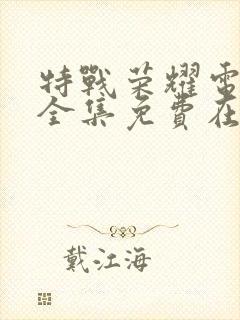 特戰荣耀電
全集免費在
戴江海